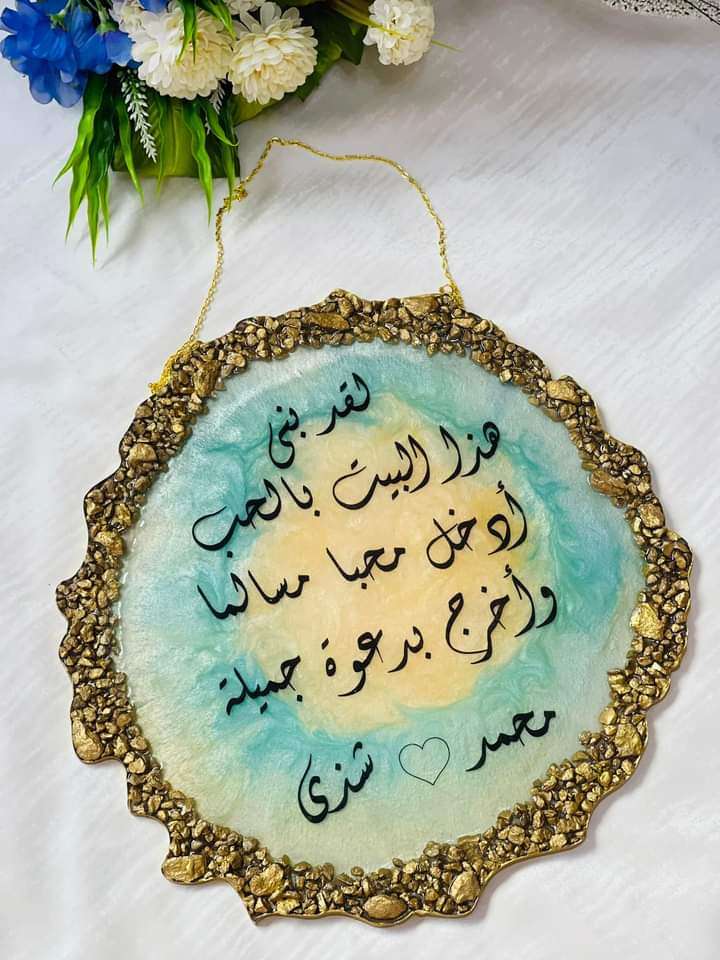 لقد بني
هذا البيت بالحب
أدخل محبا مسالما
وأخرج بدعوة جميلة
محمد ♡ شذى